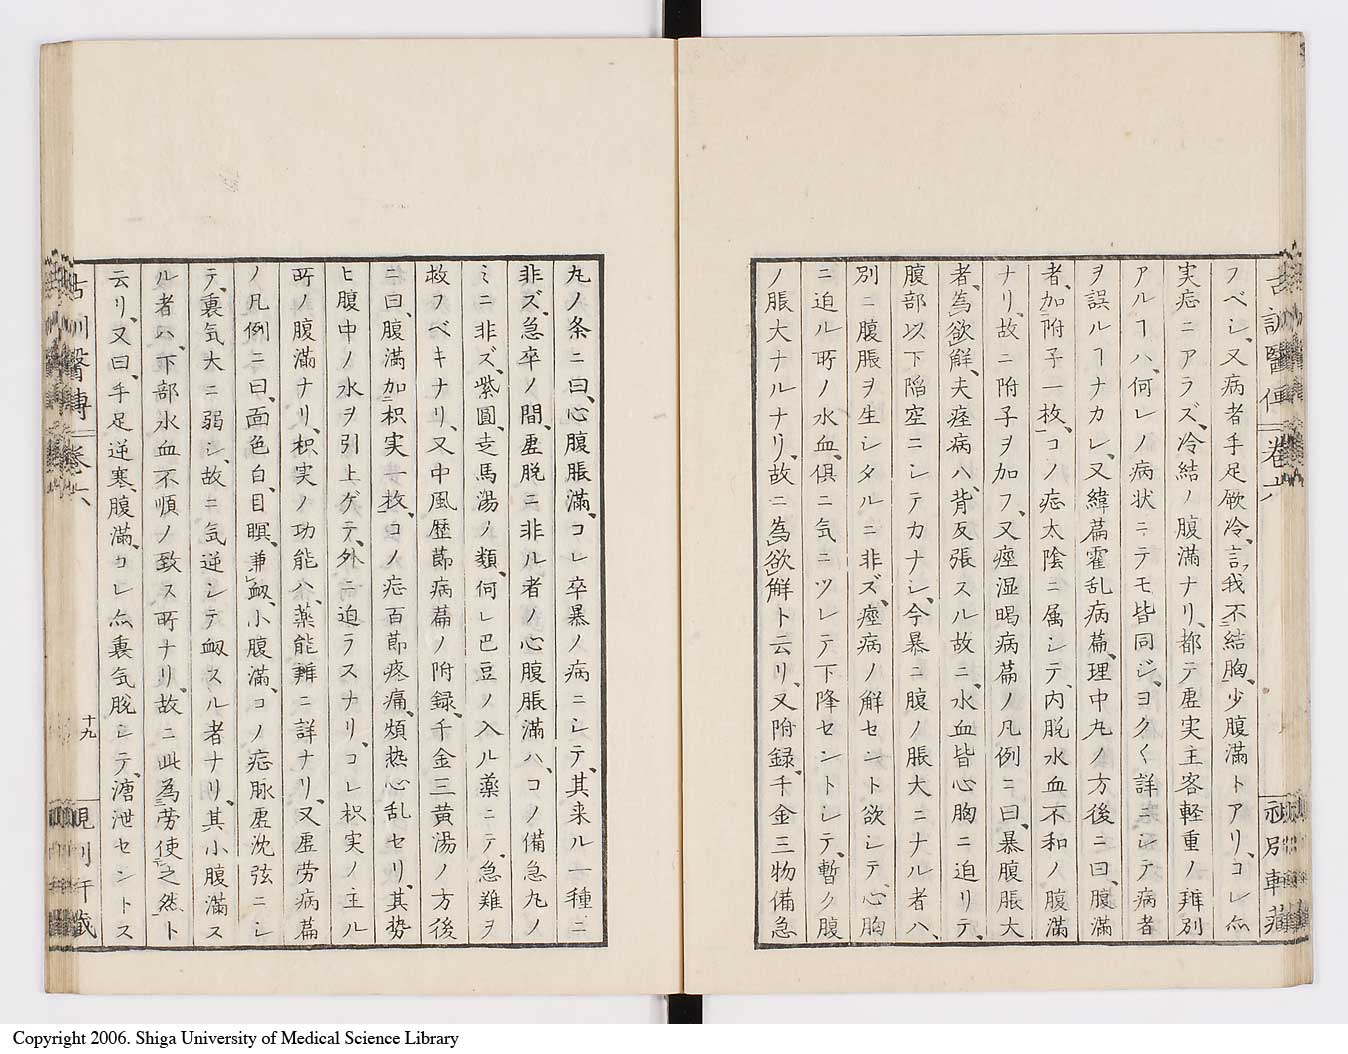 古訓醫傳 卷六
フベシ、又病者手足厥冷、言我不結胸、少腹滿トアリ、コレ亦
実症ニアラズ、冷結ノ腹滿ナリ、都テ虚実主客軽重ノ辨別
アルヿハ、何レノ病状ニテモ皆同ジ、ヨク〱詳ニシテ病者
ヲ誤ルヿナカレ、又緯篇霍乱病篇、理中丸ノ方後ニ曰、腹滿
者、加附子一枚、コノ症太陰ニ属シテ、内脱水血不和ノ腹滿
ナリ、故ニ附子ヲ加フ、又痙湿暍病篇ノ凡例ニ曰、暴腹脹大
者、為欲觧、夫痙病ハ、背反張スル故ニ、水血皆心胸ニ迫リテ、
腹部以下陥空ニシテカナシ、今暴ニ腹ノ脹大ニナル者ハ、
別ニ腹脹ヲ生シタルニ非ズ、痙病ノ解セント欲シテ、心胸
ニ迫ル所ノ水血、倶ニ気ニツレテ下降セントシテ、暫ク腹
ノ脹大ナルナリ、故ニ為欲觧ト云リ、又附録、千金三物備急
丸ノ条ニ曰、心腹脹滿、コレ卒暴ノ病ニシテ、其来ル一種ニ
非ズ、急卒ノ間、虚脱ニ非ル者ノ心腹脹滿ハ、コノ備急丸ノ
ミニ非ズ、紫圓、走馬湯ノ類、何レ巴豆ノ入ル薬ニテ、急難ヲ
救フベキナリ、又中風歴莭病篇ノ附録、千金三黄湯ノ方後
ニ曰、腹滿加枳実一枚、コノ症百莭疼痛、煩熱心乱セリ、其勢
ヒ腹中ノ水ヲ引上ゲテ、外ニ迫ラスナリ、コレ枳実ノ主ル
所ノ腹滿ナリ、枳実ノ功能ハ、薬能辨ニ詳ナリ、又虚労病篇
ノ凡例ニ曰、面色白、目瞑、兼衂、小腹滿、コノ症脈虚沈弦ニシ
テ、裏気大ニ弱シ、故ニ気逆シテ衂スル者ナリ、其小腹滿ス
ル者ハ、下部水血不順ノ致ス所ナリ、故ニ此為労使之然ト
云リ、又曰、手足逆寒、腹滿、コレ亦裏気脱シテ、溏泄セントス
十九
Copyright 2006. Shiga University of Medical Science Library